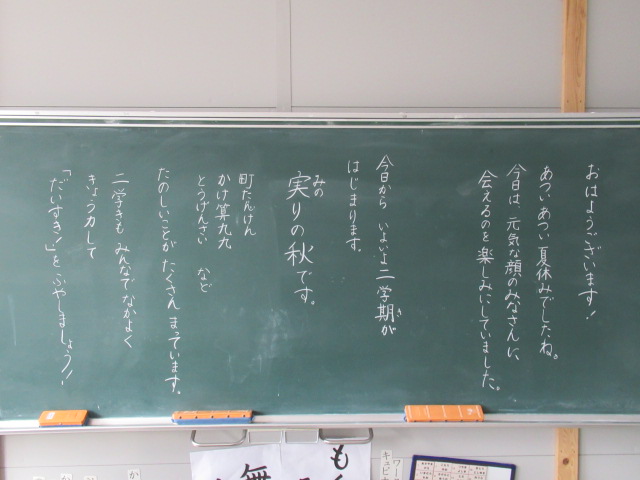 おはようございます!
あついあつい夏休みでしたね。
今日は、元気な顔のみなさんに、
会えるのを楽しみにしていました。
今日から いよいよ二学期が
はじまります。
実りの秋です。
みの
町たんけん
かけ算九九
とうげんさい など
たのしいことが たくさん まっています。
二学きも みんなでなかよく
きょう力して
「だいすき!」を ふやしましょう!
無
も